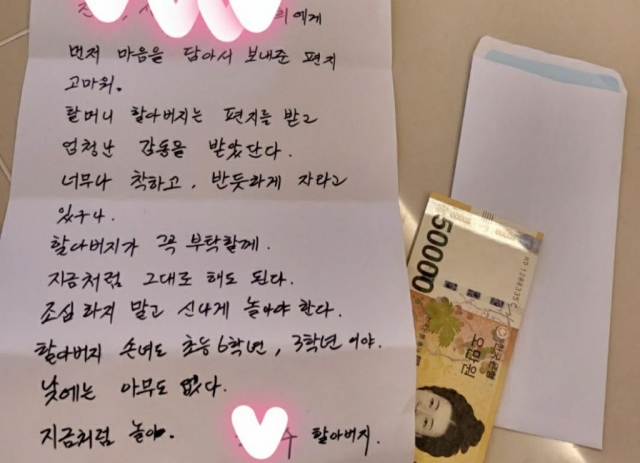 희에게
먼저 마음을 담아서 보내준 편지
고마워.
할머니 할아버지는 편지를 받고
엄청난 감동을 받았단다.
너무나 착하고, 반듯하게 자라고
있구나.
할아버지가 꼭 부탁할께.
지금처럼 그대로 해도 된다.
조심 하지 말고 신나게 놀아야 한다.
할아버지 손녀도 초등 6학년, 3학년 이야.
낮에는 아무도 없다.
지금처럼 놀아.
수 할아버지.
50000
한국은행
오만원